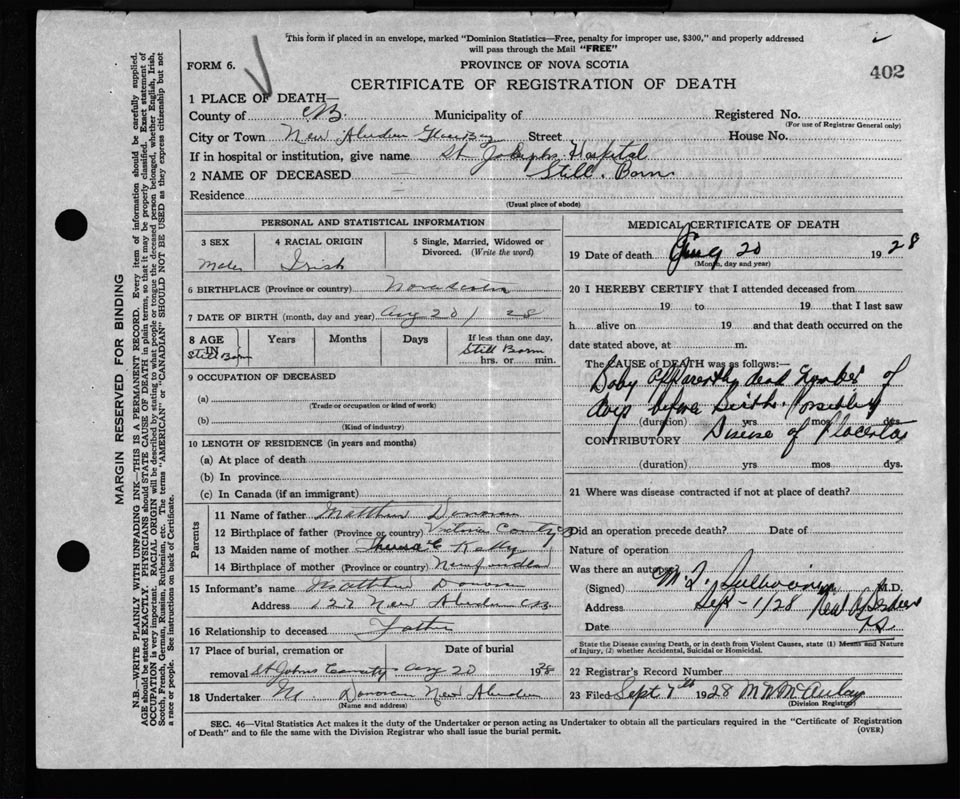 This form if placed in an envelope, marked "Dominion Statistics—Free, penalty for improper use, $300," and properly addressed
will pass through the Mail "FREE"
FORM 6.
PROVINCE OF NOVA SCOTIA
402
CERTIFICATE OF REGISTRATION OF DEATH
1 PLACE OF DEATH—
County of C.B. Municipality of Registered No.
(For use of Registrar General only)
City or Town New Aberdeen Glace Bay Street House No.
If in hospital or institution, give name St Josephs Hospital
2 NAME OF DECEASED Still Born
Residence
(Usual place of abode)
PERSONAL AND STATISTICAL INFORMATION
3 SEX 4 RACIAL ORIGIN 5 Single, Married, Widowed or Divorced. (Write the word)
Male Irish
6 BIRTHPLACE (Province or country) Nova Scotia
7 DATE OF BIRTH (month, day and year) Aug 20 / 28
8 AGE IN Years Months Days If less than one day,
Still Born Still Born
hrs. or min.
9 OCCUPATION OF DECEASED
(a)
(Trade or occupation or kind of work)
(b)
(Kind of industry)
10 LENGTH OF RESIDENCE (in years and months)
(a) At place of death
(b) In province
(c) In Canada (if an immigrant)
Parents
11 Name of father Matthew Donovan
12 Birthplace of father (Province or country) Victoria County
13 Maiden name of mother Kelly
14 Birthplace of mother (Province or country) Newfoundland
15 Informant's name Matthew Donovan
Address 127 New Aberdeen CB
16 Relationship to deceased Father
17 Place of burial, cremation or Date of burial
removal St Johns Aug 20 1928
18 Undertaker M Donovan New Aberdeen
(Name and address)
MEDICAL CERTIFICATE OF DEATH
19 Date of death Aug 20 1928
(Month, day and year)
20 I HEREBY CERTIFY that I attended deceased from
19 to 19 that I last saw
h alive on 19 and that death occurred on the
date stated above, at m.
The CAUSE of DEATH was as follows:
Baby apparently dead number of
days before birth. Possibly
(duration) yrs mos dys.
CONTRIBUTORY Disease of Placenta
(duration) yrs mos dys.
21 Where was disease contracted if not at place of death?
Did an operation precede death? Date of
Nature of operation
Was there an autopsy
(Signed) M.D.
Address New Aberdeen
Sep - 1/28
Date
State the Disease causing Death, or in death from Violent Causes, state (1) Means and Nature of Injury, (2) whether Accidental, Suicidal or Homicidal.
22 Registrar's Record Number
23 Filed Sept 7th 1928 M McAulay
(Division Registrar)
SEC. 46—Vital Statistics Act makes it the duty of the Undertaker or person acting as Undertaker to obtain all the particulars required in the "Certificate of Registration
of Death" and to file the same with the Division Registrar who shall issue the burial permit.
(OVER)
MARGIN RESERVED FOR BINDING
N.B.—WRITE PLAINLY WITH UNFADING INK—THIS IS A PERMANENT RECORD. Every item of information should be carefully supplied.
AGE should be stated EXACTLY. PHYSICIANS should STATE CAUSE OF DEATH in plain terms, so that it may be properly classified. Exact statement of
OCCUPATION is very important. RACIAL ORIGIN will be described by stating to what people or tongue the deceased person belonged, whether English, Irish,
Scotch, French, German, Russian, Ruthenian, etc. The terms "AMERICAN" or "CANADIAN" SHOULD NOT BE USED as they express citizenship but not
a race or people. See instructions on back of Certificate.